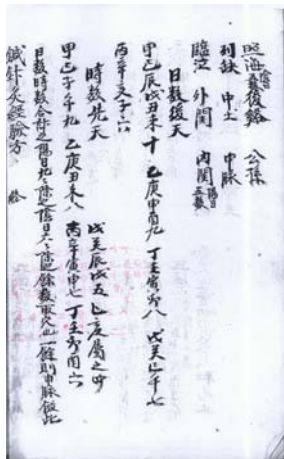 照海 後谿 公孫
列缺 申土 申脉
臨泣 外関 内関
日數後天
甲己辰戌丑未十 乙庚申酉九 丁壬寅卯八 戊癸巳午七
丙辛亥子六
時數先天
甲己子午九 乙庚丑未八 丙辛寅申七 丁壬卯酉六
戊癸辰戌五 巳亥屬之四
日數時數合併之陽日九除之陰日六除之餘數取穴也一餘則申脉倣此
鍼灸經驗方 終